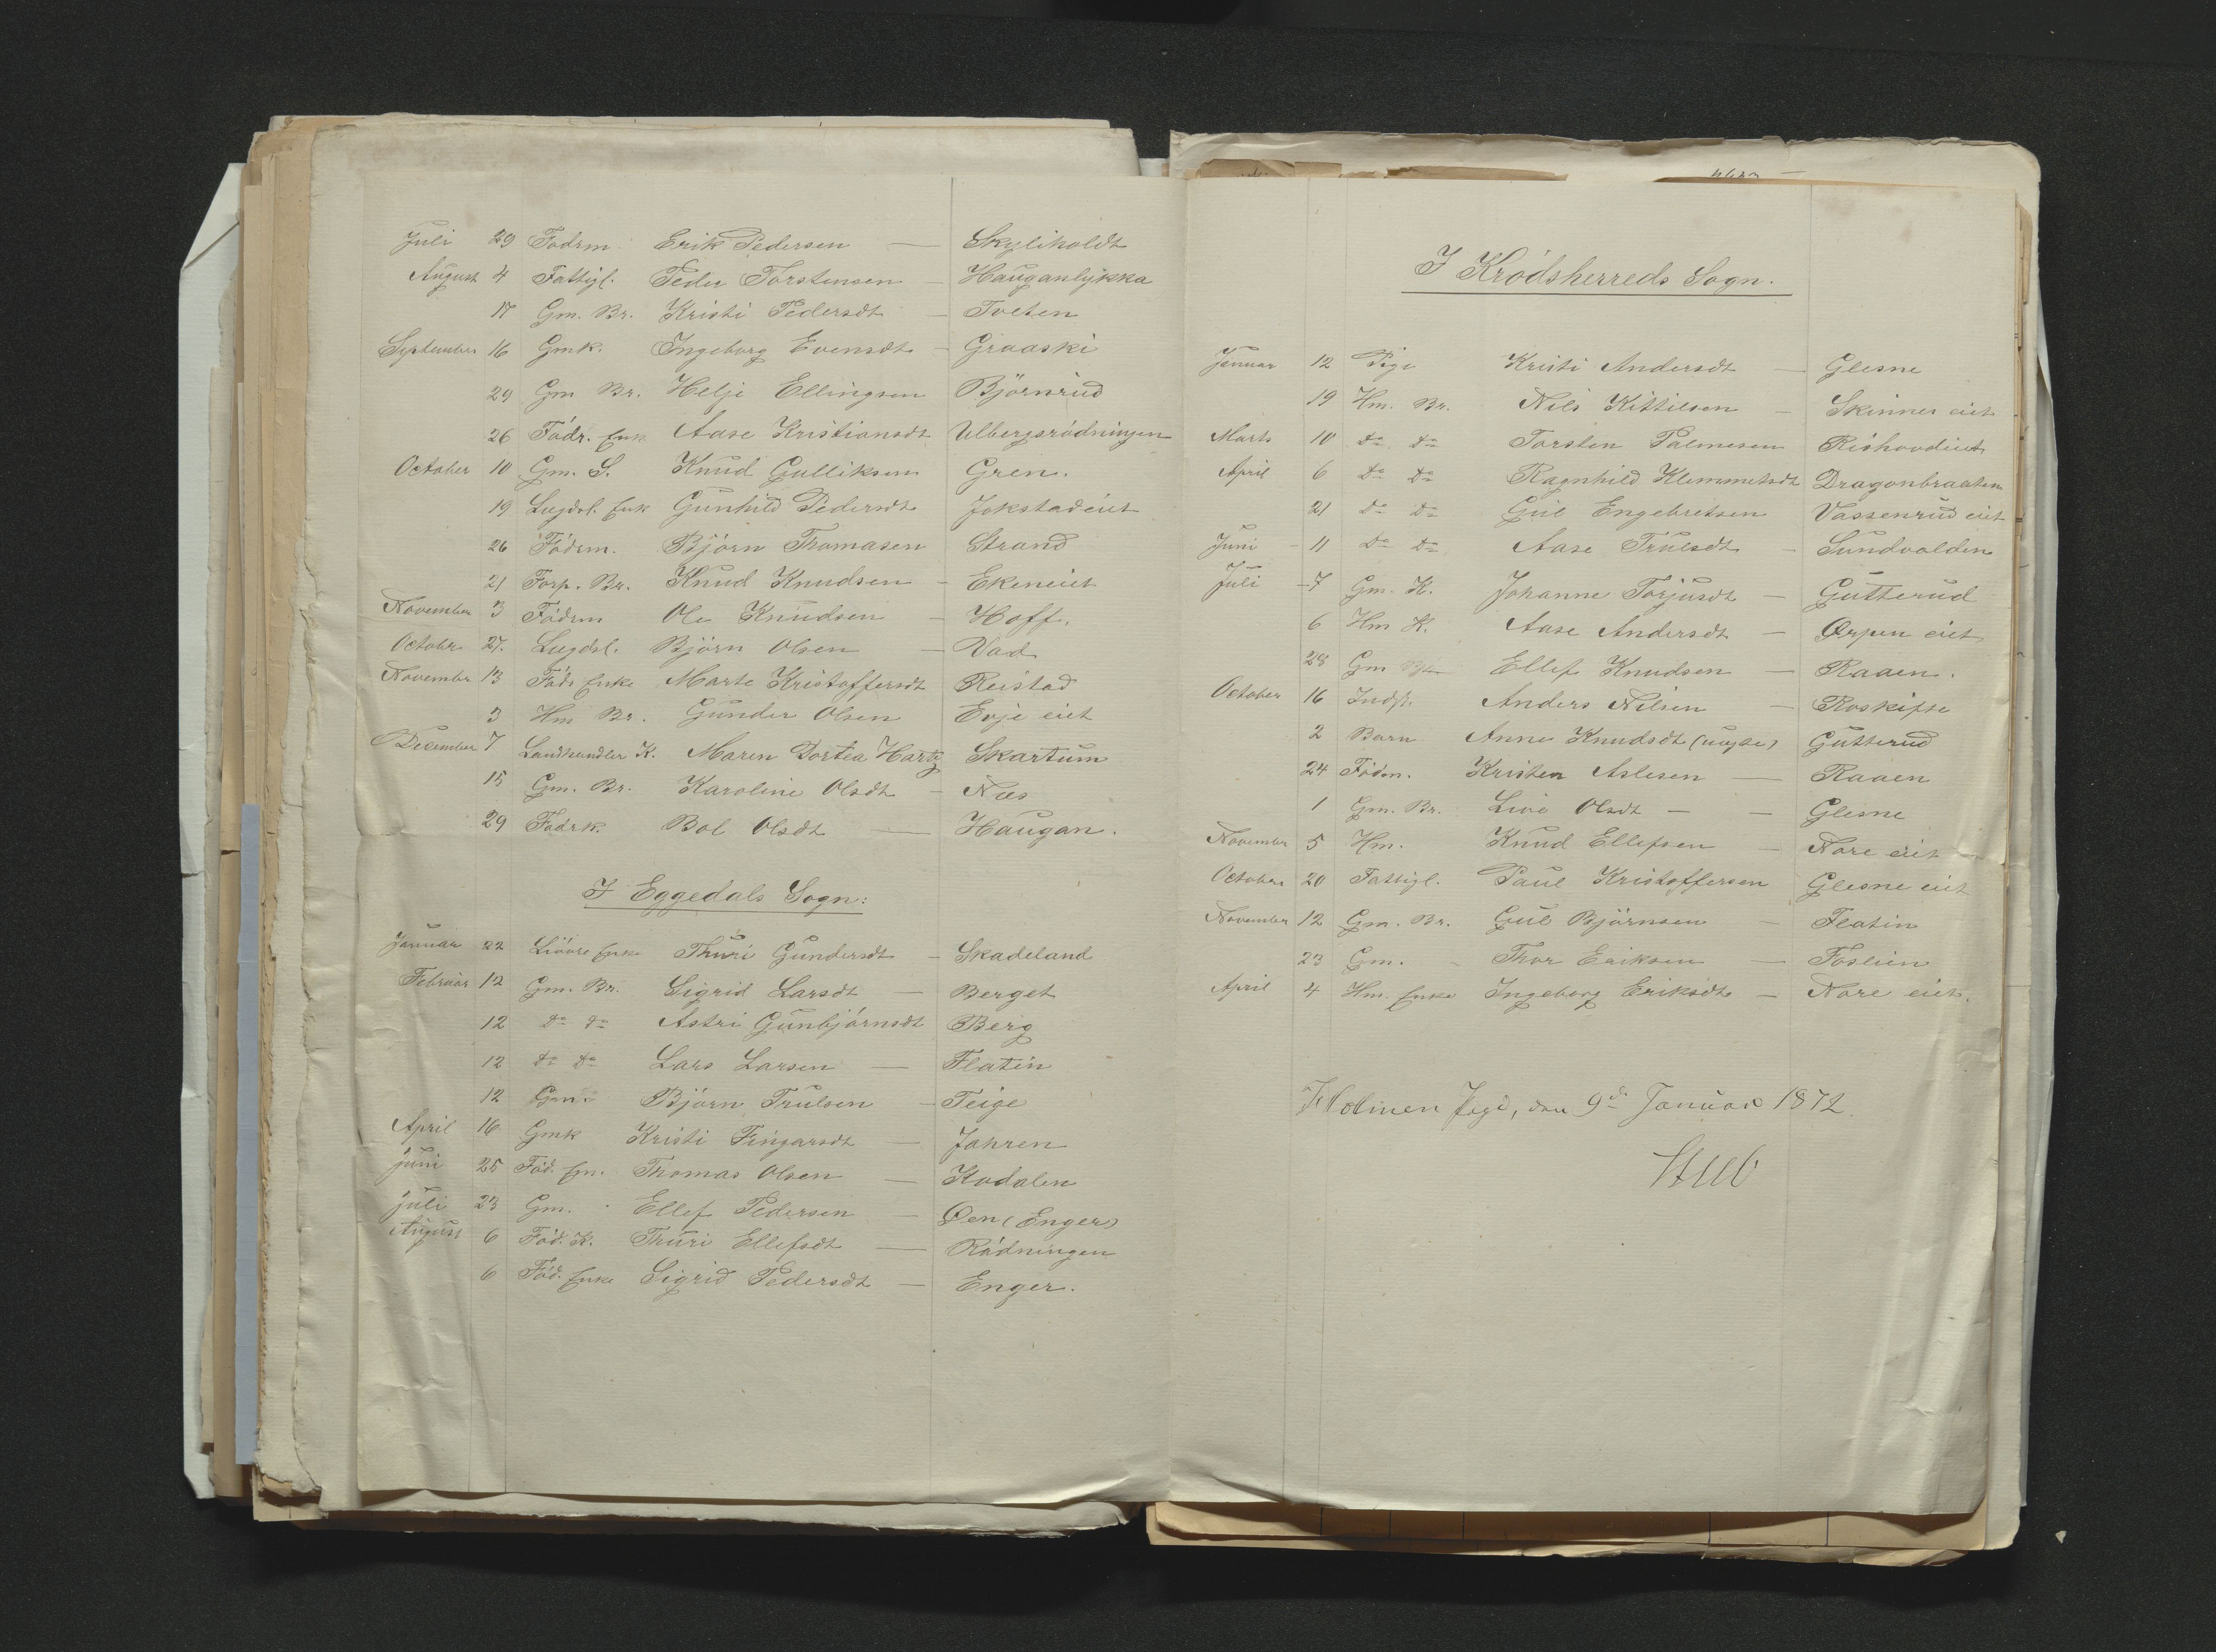 Juli 29 Fodrm. Erik Pedersen — Skyliholdt
August 4 Fattigl. Peder Torstensen — Hauganlykka
17 Gm. Br. Kristi Pedersdt — Tveten
September 16 Gmk. Ingeborg Evensdt — Graaski
29 Gm Br. Helje Ellingsen Björnrud
26 Födr. Enk Aase Kristiansdt Ulbergsrödningen
October 10 Gm. S. Knud Gulliksen Gren.
19 Lugdsl. Enk Gunhild Pedersdt Jokstadeiet
26 Födrm. Björn Thomasen Strand
21 Forp. Br. Knud Knudsen — Ekeneiet
November 3 Födrm Ole Knudsen — Hoff.
October 27. Lugdsl. Björn Olsen — Vad
Novembr 13 Födr Enke Marte Kristoffersdt Reistad
3 Hm Br. Gunder Olsen Evje eiet
December 7 Landhandler K. Maren Dortea Hartz Skartum
15 Gm. Br. Karoline Olsdt — Næs
29 Fodrk. Bol Olsdt — Haugan.
I Eggedals Sogn:
Januar 22 Enke Thuri Gundersdt — Skadeland
Februar 12 Gm. Br. Sigrid Larsdt — Berget
12 Do do Astri Gunbjörnsdt Berg
12 do Do Lars Larsen — Flatin
12 Gm. Björn Trulsen — Teige
April 16 Gmk Kristi Fingarsdt — Jahren
Juni 25 Föd. Em. Thomas Olsen — Kodalen
Juli 23 Gm. Ellef Pedersen — Øen (Enger)
August 6 Föd. K. Thuri Ellefsdt — Rödningen
6 Föd. Enke Sigrid Pedersdt — Enger.
I Krödsherreds Sogn.
Januar 12 Pige Kristi Andersdt — Glesne
19 Hm. Br. Nils Kittilsen — Skinnes eiet
Marts 10 do Do Torsten Palmesen Rishovdeiet
April 6 Do Do Ragnhild Klemmetsdt Dragonbraaten
21 Do Do Gul Engebretsen Vassenrud eiet
Juni 11 Do Do Aase Trulsdt — Sundvolden
Juli 7 Gm. K. Johanne Torjusdt — Gutterud
6 Hm K. Aase Andersdt — Ørpen eiet
28 Gm Ellef Knudsen — Raaen.
October 16 Indst. Anders Nilsen — Roskifte
2 Barn Anne Knudsdt (uægte) Gutterud
24 Födm. Kristen Aslesen — Raaen
1 Gm. Br. Live Olsdt — Glesne
Novembr 5 Hm. Knud Ellefsen — Nare eiet
October 20 Fattigl. Paul Kristoffersen Glesne eiet
November 12 Gm. Br. Gul Björnsen — Flatin
23 Gm. Thor Eriksen — Foslien
April 4 Hm. Enke Ingeborg Eriksdt — Nare eiet.
Holmen Sigd, den 9de Januar 1872.